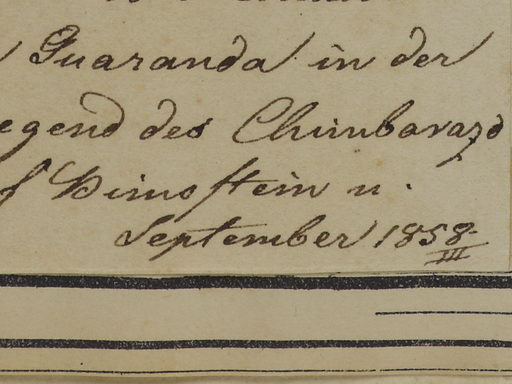 Guaranda in der
egend des Chimborazo
f Bimsstein u.
September 1858
III